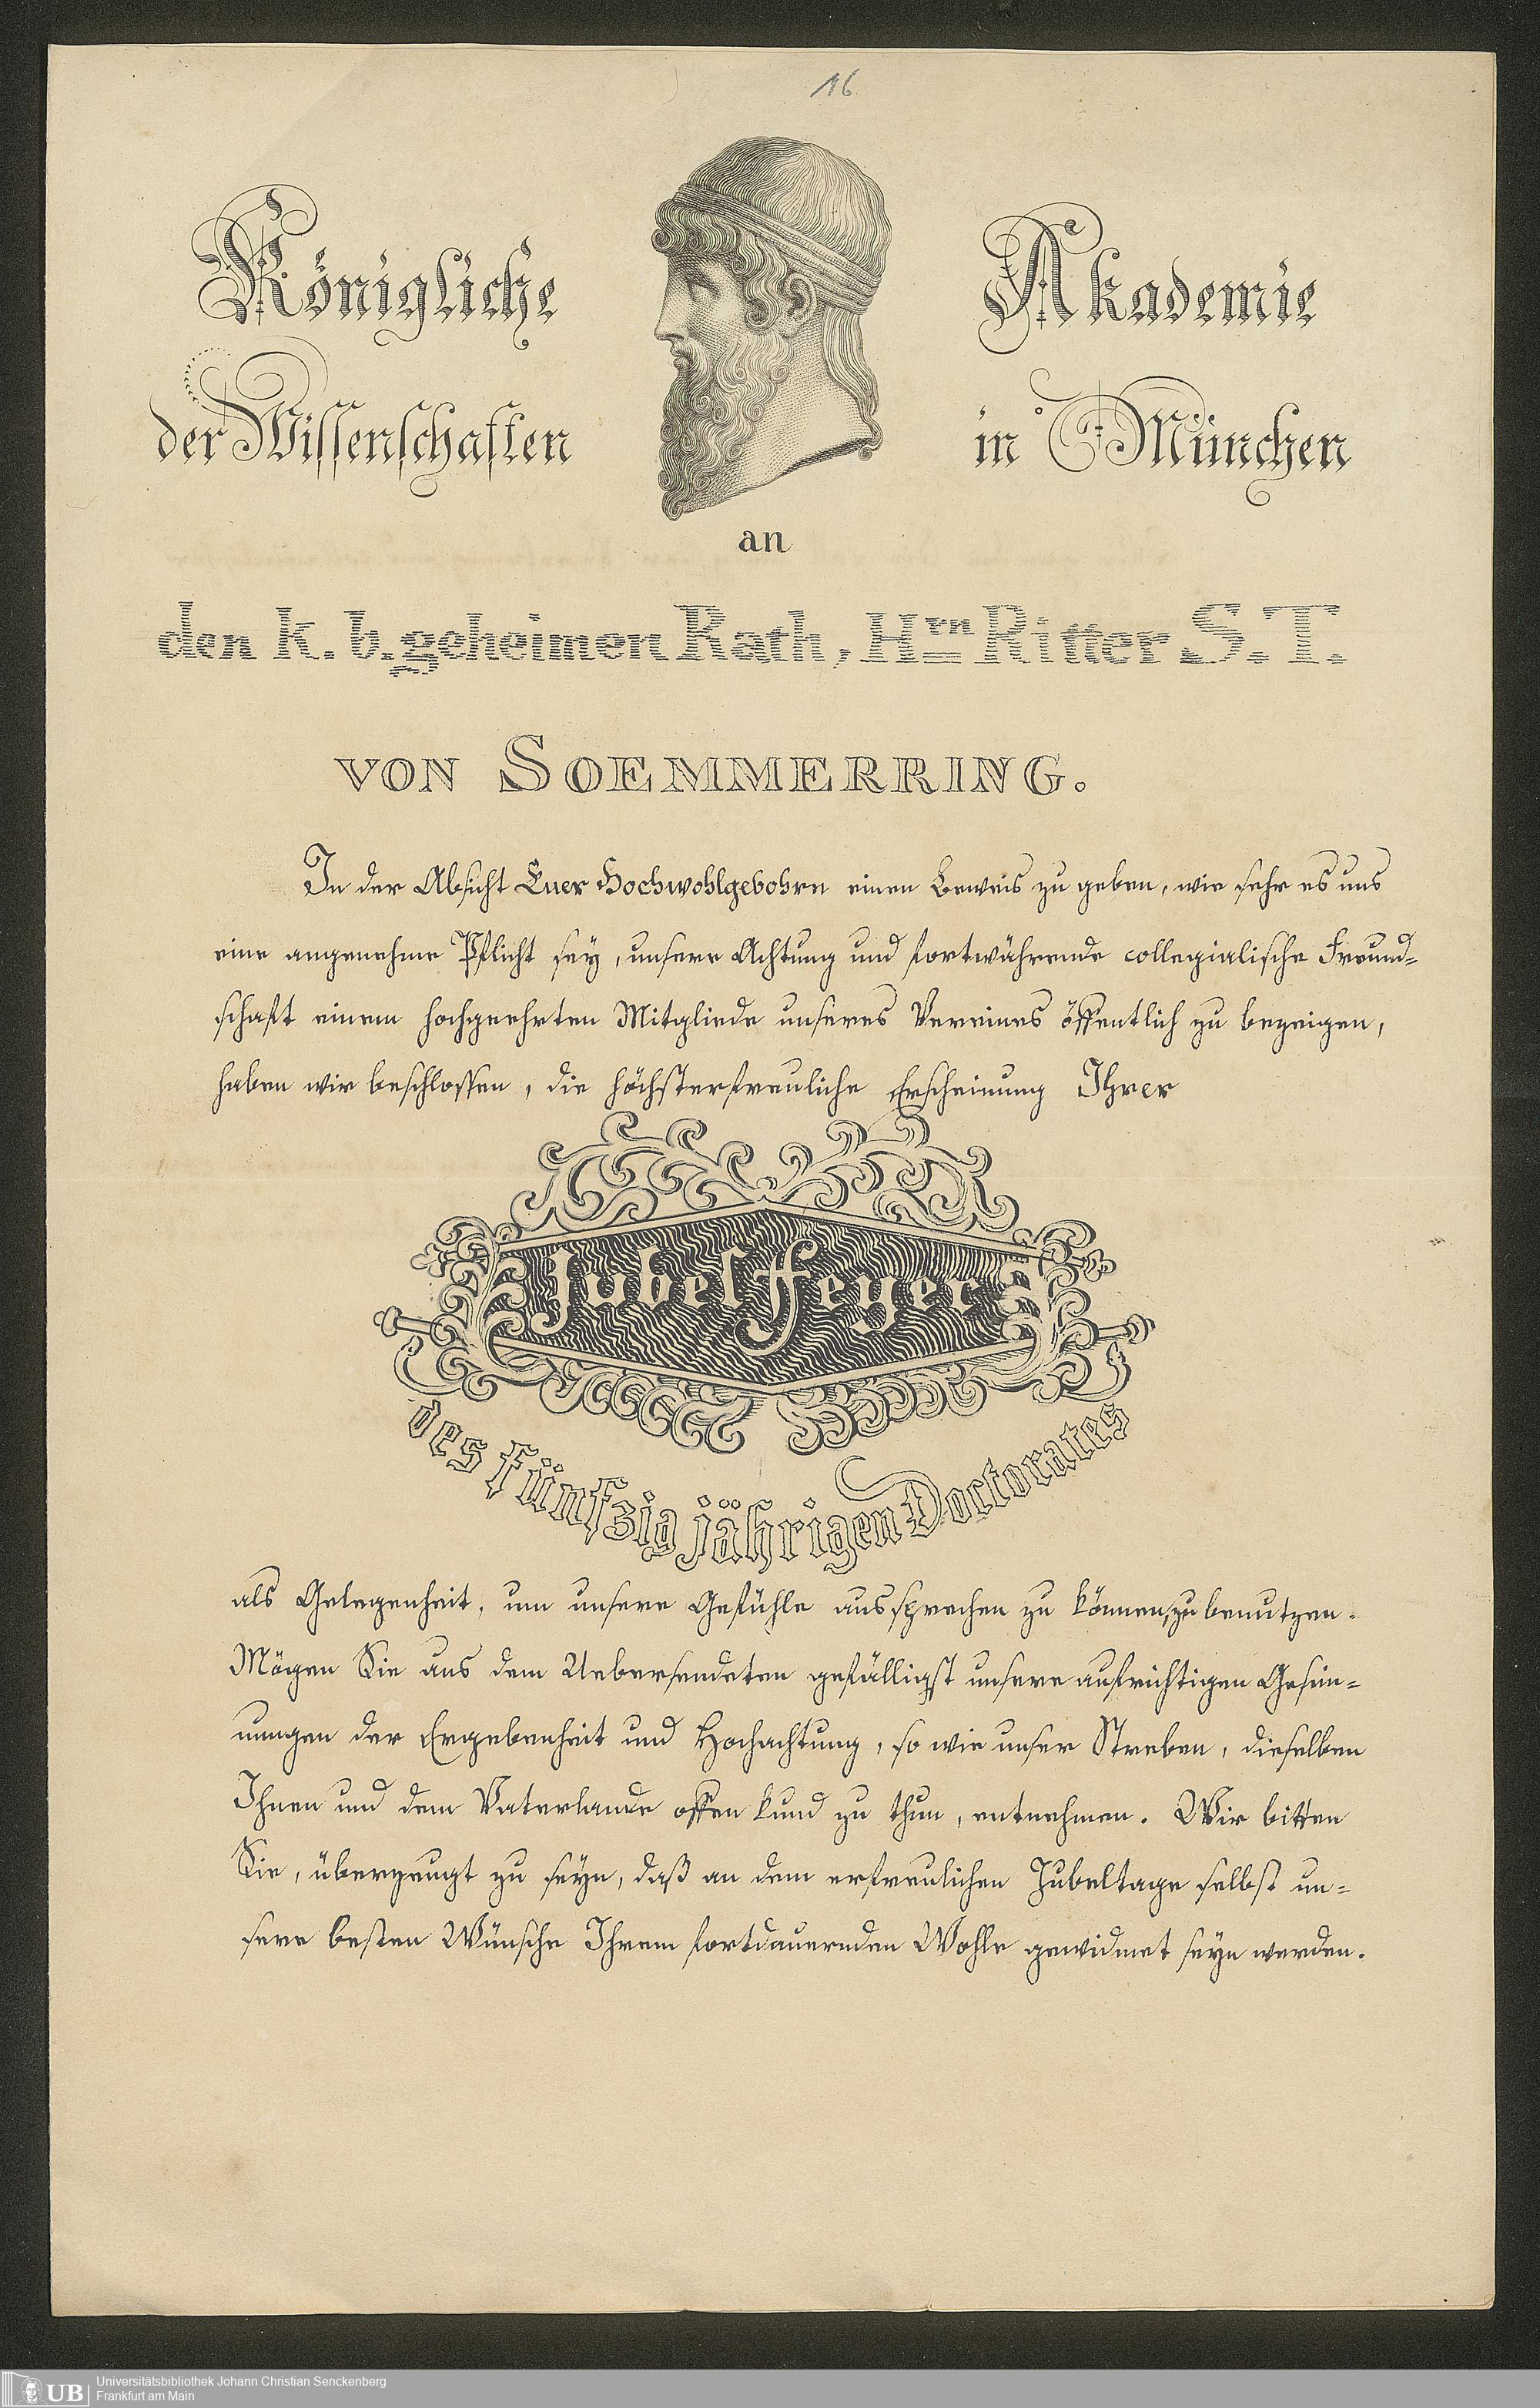 16
Königliche Akademie
der Wissenschaften in München
an
den k. b. geheimen Rath, Hrn Ritter S. T.
VON SOEMMERRING.
In der Absicht Euer Hochwohlgebohrn einen Beweis zu geben, wie sehr es uns
eine angenehme Pflicht sey, unsere Achtung und fortwährende collegialische Freund-
schaft einem hochgeehrten Mitgliede unseres Vereines öffentlich zu bezeigen,
haben wir beschlossen, die höchsterfreuliche Erscheinung Ihrer
Jubelfeyer
des fünfzig jährigen Doctorates
als Gelegenheit, um unsere Gefühle aussprechen zu können, zu benutzen.
Mögen Sie aus dem Uebersendeten gefälligst unsere aufrichtigen Gesin-
nungen der Ergebenheit und Hochachtung, so wie unser Streben, dieselben
Ihnen und dem Vaterlande offen kund zu thun, entnehmen. Wir bitten
Sie, überzeugt zu seyn, daß an dem erfreulichen Jubeltage selbst un-
sere besten Wünsche Ihrem fortdauernden Wohle gewidmet seyn werden.
UB Universitätsbibliothek Johann Christian Senckenberg
Frankfurt am Main